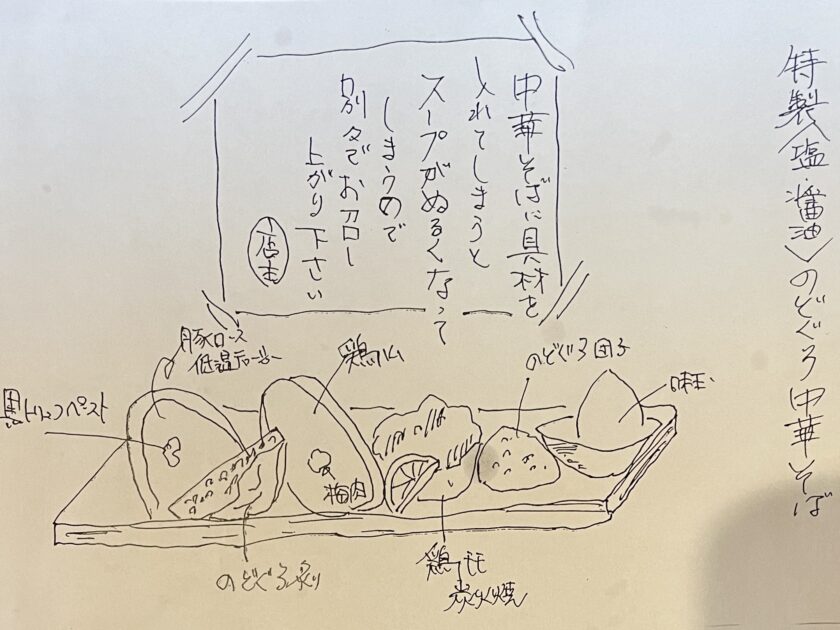 特製〈塩・醤油〉のどぐろ中華そば
中華そばに具材を
入れてしまうと
スープがぬるくなって
しまうので
別々でお召し
上がり下さい
店主
味玉
のどぐろ団子
鶏ハム
梅肉
豚ロース
低温
黒トリュフペースト
のどぐろ炙り
鶏モモ
炭火焼